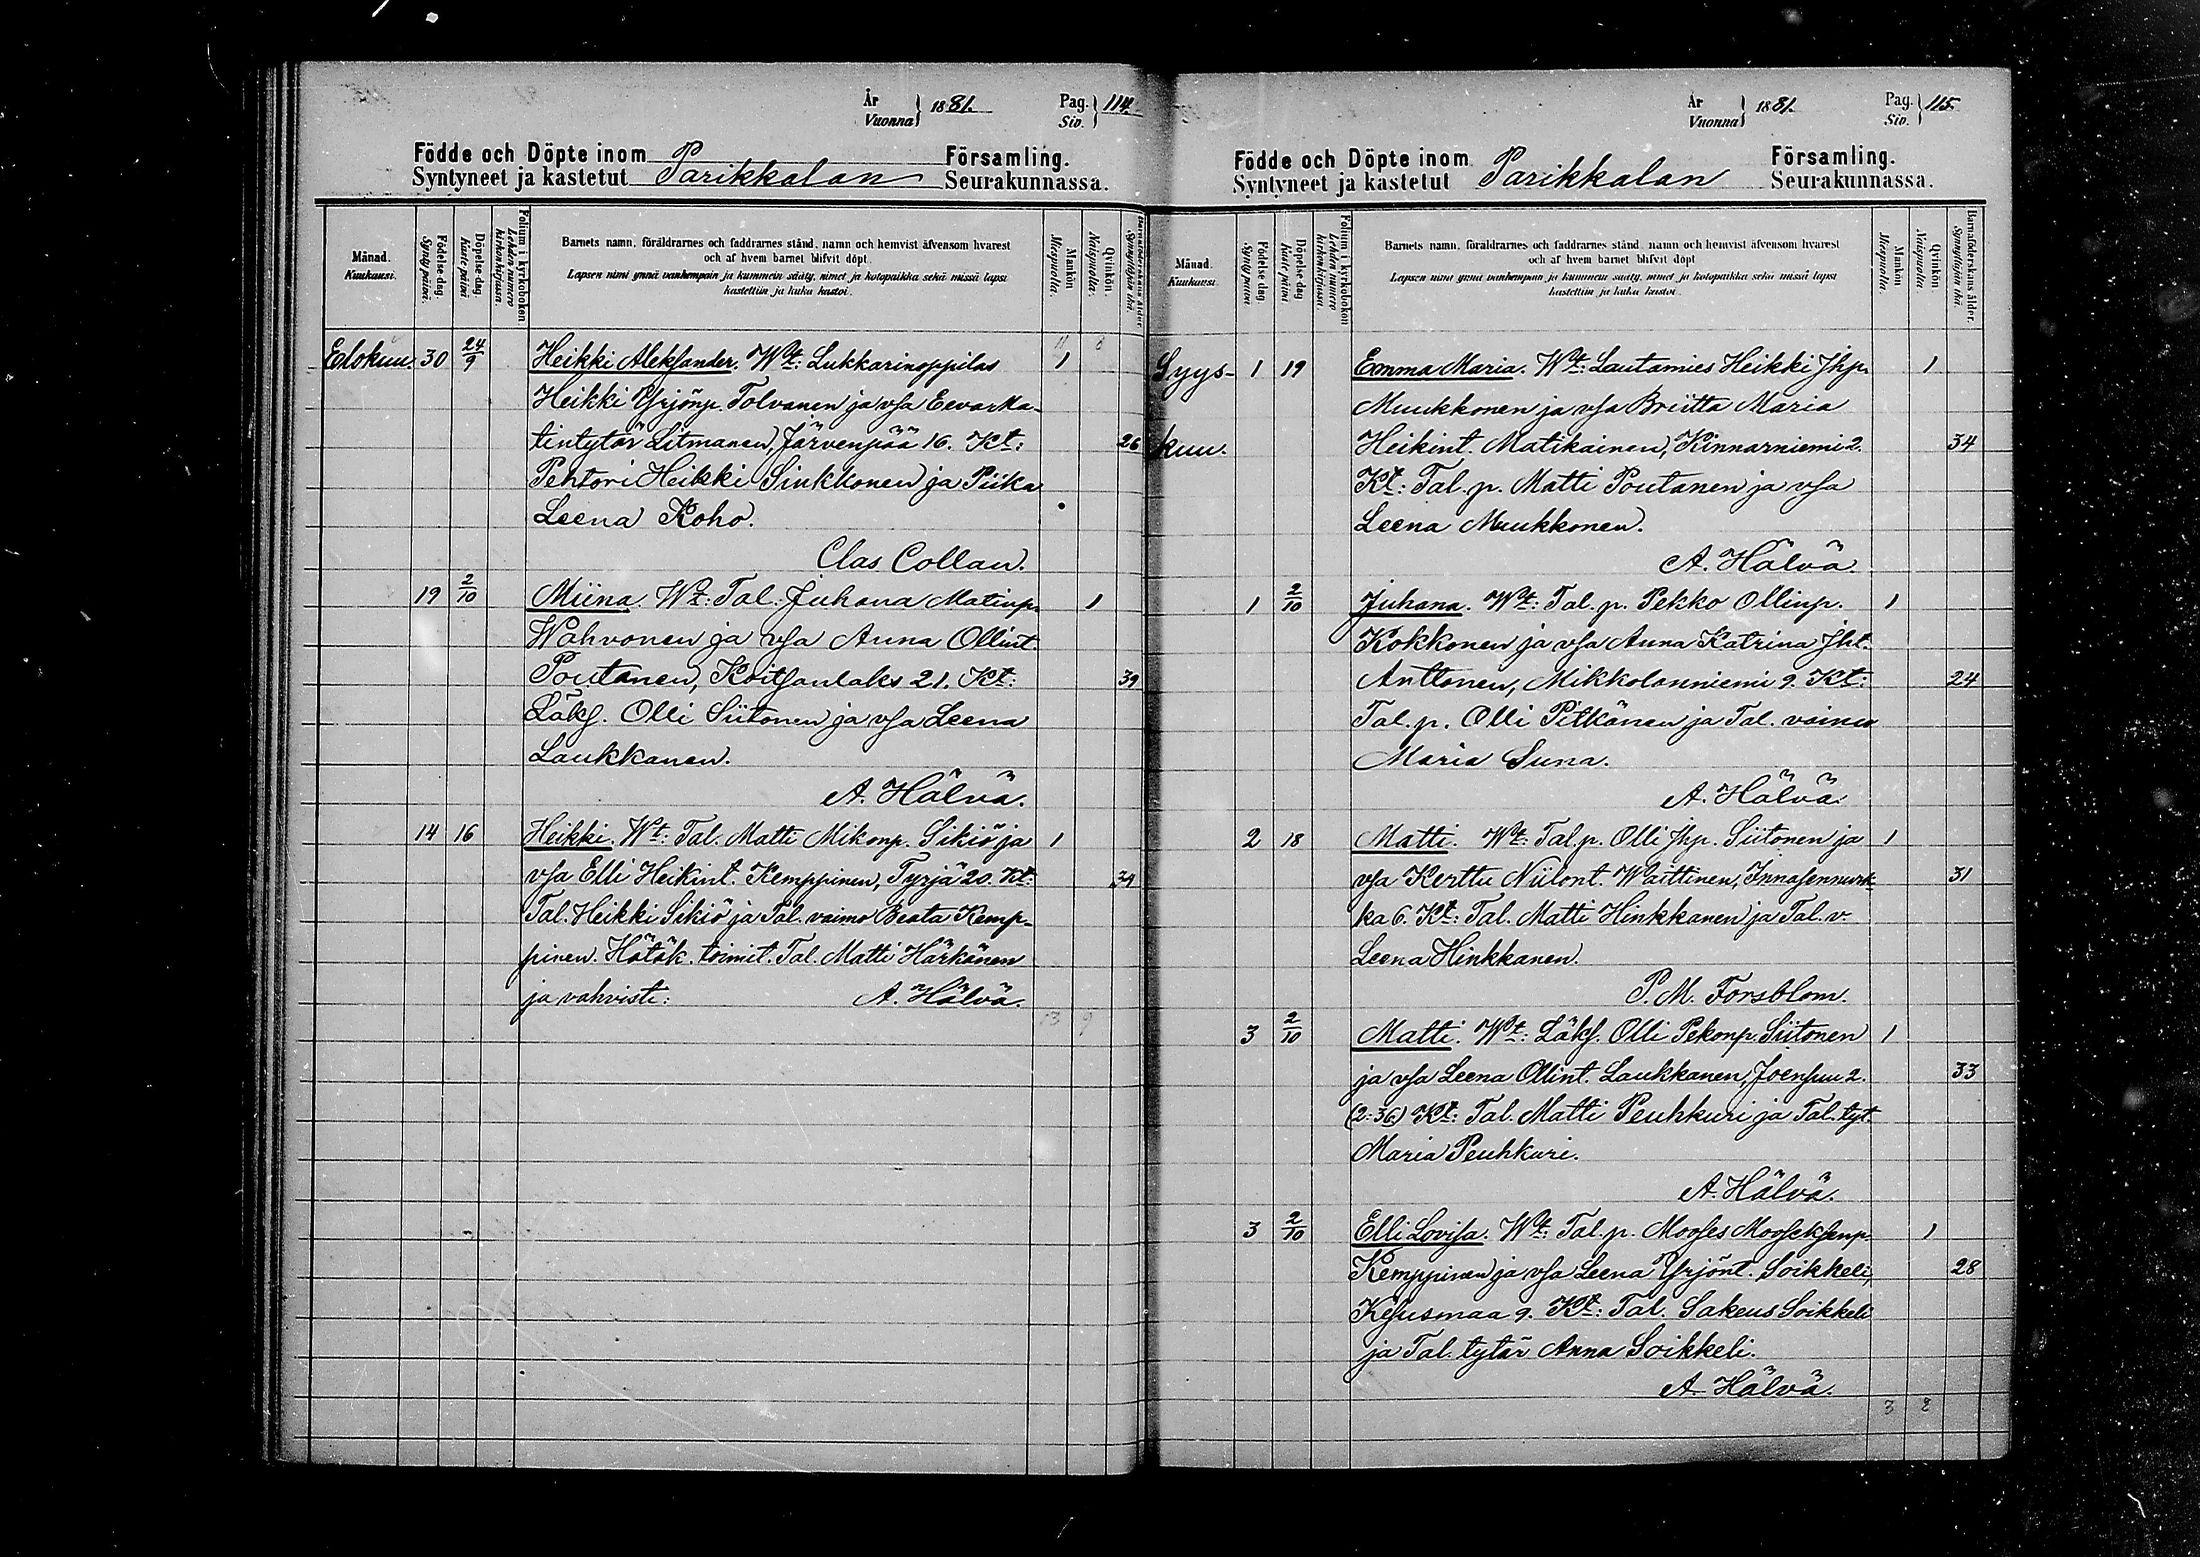 År
Vuonna } 1881.
Pag.
Siv. } 114.
Födde och Döpte inom Församling.
Syntyneet ja kastetut Parikkalan Seurakunnassa.
Månad.
Kuukausi.
Födelse-dag.
Synty päivä.
Döpelse-dag.
Kaste päivä
Folium i kyrkoboken
Lehden numero
kirkonkirjassa.
Barnets namn, föräldrarnes och faddrarnes stånd, namn och hemvist äfvensom hvarest
och af hvem barnet blifvit döpt.
Lapsen nimi ynnä vanhempain ja kummein sääty, nimet ja kotopaikka sekä missä lapsi
kastettiin ja kuka kastoi.
Mankön
Miespuolia.
Qvinkön.
Naispuolia.
Barnaföderskans ålder.
Synnyttäjän ikä.
11 8
Elokuu. 30 24/9 Heikki Aleksander. Wt: Lukkarinoppilas 1
Heikki Yrjönp. Tolvanen ja vsa Eeva Ma-
tintytär Litmanen, Järvenpää 16. Kt: 26
Pehtori Heikki Sinkkonen ja Piika
Leena Koho.
Clas Collan.
19 2/10 Miina. Wt: Tal. Juhana Matinp. 1
Wahvonen ja vsa Anna Ollint.
Poutanen, Koitsanlaks 21. Kt: 39
Läks. Olli Siitonen ja vsa Leena
Laukkanen.
A. Hälvä.
14 16 Heikki. Wt: Tal. Matti Mikonp. Sikiö ja 1
vsa Elli Heikint. Kemppinen, Tyrjä 20. Kt: 34
Tal. Heikki Sikiö ja Tal. vaimo Beata Kemp-
pinen. Hätäk. toimit. Tal. Matti Härkönen
ja vahvisti: A. Hälvä.
13 9
År
Vuonna } 1881.
Pag.
Siv. } 115.
Födde och Döpte inom Församling.
Syntyneet ja kastetut Parikkalan Seurakunnassa.
Månad.
Kuukausi.
Födelse-dag
Synty päivä.
Döpelse-dag
Kaste päivä
Folium i kyrkoboken
Lehden numero
kirkonkirjassa.
Barnets namn, föräldrarnes och faddrarnes stånd, namn och hemvist äfvensom hvarest
och af hvem barnet blifvit döpt.
Lapsen nimi ynnä vanhempain ja kummein sääty, nimet ja kotopaikka sekä missä lapsi
kastettiin ja kuka kastoi.
Mankön
Miespuolia.
Qvinkön
Naispuolia
Barnaföderskans ålder.
Synnyttäjän ikä.
Syys- 1 19 Emma Maria. Wt: Lautamies Heikki Jhp. 1
Muukkonen ja vsa Briitta Maria
kuu. Heikint. Matikainen, Kinnarniemi 2. 34
Kt: Tal. p. Matti Poutanen ja vsa
Leena Muukkonen.
A. Hälvä.
1 2/10 Juhana. Wt: Tal. p. Pekko Ollinp. 1
Kokkonen ja vsa Anna Katrina Jht.
Anttonen, Mikkolanniemi 9. Kt: 24
Tal. p. Olli Pitkänen ja Tal. vaimo
Maria Suna.
A. Hälvä.
2 18 Matti. Wt: Tal. p. Olli Jhp. Siitonen ja 1
vsa Kerttu Niilont. Waittinen, 31
ka 6. Kt: Tal. Matti Hinkkanen ja Tal. v.
Leena Hinkkanen.
P. M. Forsblom.
3 2/10 Matti. Wt: Läks. Olli Pekonp. Siitonen 1
ja vsa Leena Ollint. Laukkanen, Joensuu 2. 33
(2:36) Kt: Tal. Matti Peuhkuri ja Tal. tyt.
Maria Peuhkuri.
A. Hälvä.
3 2/10 Elli Lovisa. Wt: Tal. p. Mooses Mooseksenp. 1
Kemppinen ja vsa Leena Yrjönt. Soikkeli, 28
Kesusmaa 9. Kt: Tal. Sakeus Soikkeli
ja Tal. tytär Anna Soikkeli.
A. Hälvä.
3 2